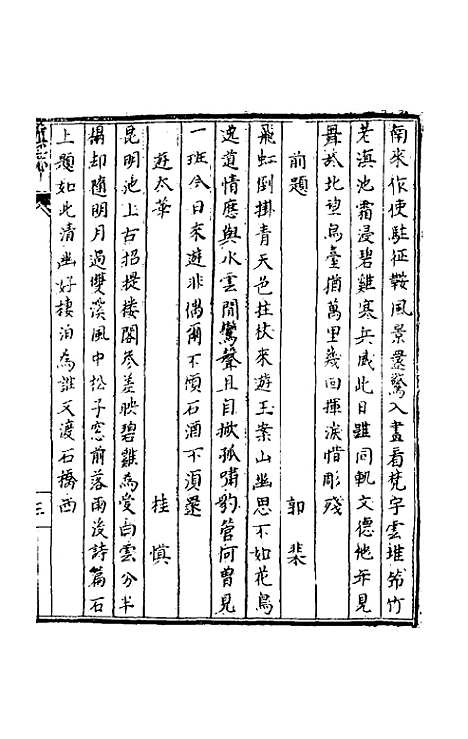 南來作使駐征鞍風景盡驚入畫看梵宇雲堆笻竹
老滇池霜浸碧雞寒兵威此日雖同軌文德他年見
舞干北望烏臺猶萬里幾回揮淚惜彫殘
前題 郭棐
飛虹倒掛青天色拄杖來遊玉案山幽思不如花鳥
逸道情應與水雲閒鸞聲且自掀孤嘯豹管何曾見
一班今日來遊非偶爾不煩石酒不須還
遊太華 桂慎
昆明池上古招提樓閣參差映碧雞為愛白雲分半
榻却隨明月過雙溪風中松子窓前落雨後詩篇石
上題如此清幽好棲泊為誰又渡石橋西
三